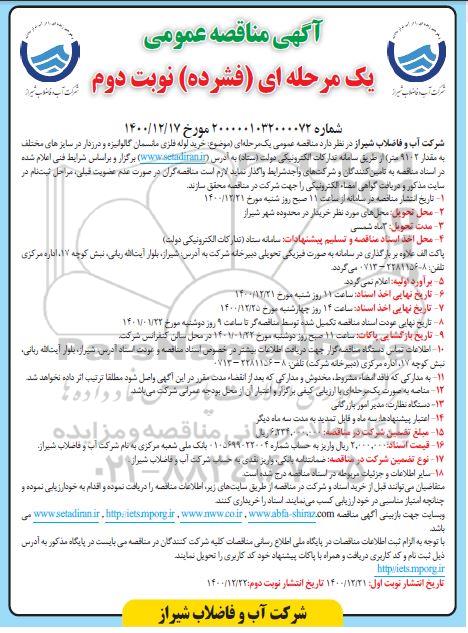 آگهی مناقصه عمومی
یک مرحله ای (فشرده) نوبت دوم
شرکت آب و فاضلاب شیراز
شرکت آب و فاضلاب شیراز
شماره ۲۰۰۰۰۰۱۰۳۲۰۰۰۰۷۲ مورخ ۱۴۰۰/۱۲/۱۷
شرکت آب و فاضلاب شیراز در نظر دارد مناقصه عمومی یک‌مرحله‌ای (موضوع: خرید لوله فلزی مانسمان گالوانیزه و درزدار در سایز های مختلف
به مقدار ۹۱۰۲ متر) از طریق سامانه تدارکات الکترونیکی دولت (ستاد) به آدرس (www.setadiran.ir) برگزار و براساس شرایط فنی اعلام شده
در اسناد مناقصه به تامین‌کنندگان و شرکت‌های واجدشرایط واگذار نماید لازم است مناقصه‌گران در صورت عدم عضویت قبلی، مراحل ثبت‌نام در
سایت مذکور و دریافت گواهی امضاء الکترونیکی را جهت شرکت در مناقصه محقق سازند.
۱- تاریخ انتشار مناقصه در سامانه از ساعت ۱۱ صبح روز شنبه مورخ ۱۴۰۰/۱۲/۲۱
۲- محل تحویل: محل‌های مورد نظر خریدار در محدوده شهر شیراز
۳- مدت تحویل: ۳ماه شمسی
۴- محل اخذ اسناد مناقصه و تسلیم پیشنهادات: سامانه ستاد (تدارکات الکترونیکی دولت)
پاکت الف علاوه بر بارگذاری در سامانه به صورت فیزیکی تحویلی دبیرخانه شرکت به آدرس: شیراز، بلوار آیت‌الله ربانی، نبش کوچه ۱۷، اداره مرکزی
تلفن: ۸-۳۲۲۸۱۱۵۶-۰۷۱۳ می‌گردد.
۵- برآورد اولیه: اعلام نمی‌گردد.
۶- تاریخ نهایی اخذ اسناد: ساعت ۱۱ روز شنبه مورخ ۱۴۰۰/۱۲/۲۱
۷- تاریخ نهایی اخذ اسناد: ساعت ۱۴ روز چهارشنبه مورخ ۱۴۰۰/۱۲/۲۵
۸- تاریخ نهایی عودت اسناد مناقصه تکمیل شده توسط مناقصه‌گر تا ساعت ۹ روز دوشنبه مورخ ۱۴۰۱/۰۱/۲۲
۹- تاریخ بازگشایی پاکات: ساعت ۱۱ صبح روز دوشنبه مورخ ۱۴۰۱/۰۱/۲۲ در محل سالن کنفرانس شرکت.
۱۰- اطلاعات تماس دستگاه مناقصه‌گزار جهت دریافت اطلاعات بیشتر در خصوص اسناد مناقصه و عودت اسناد آدرس: شیراز، بلوار آیت‌الله ربانی،
نبش کوچه ۱۷، اداره مرکزی (دبیرخانه شرکت) تلفن:
۱۱- به مدارکی که فاقد امضاء، مشروط، مخدوش و مدارکی که بعد از انقضاء مدت مقرر در این آگهی واصل شود مطلقا ترتیب اثر داده نخواهد شد.
۱۲- مناقصه به صورت یک‌مرحله‌ای با ارزیابی کیفی برگزار و اعتبار آن از محل بودجه عمرانی شرکت می‌باشد.
۱۳- دستگاه نظارت: مدیر امور بازرگانی
۱۴- اعتبار پیشنهادها: سه ماه و قابل تمدید به مدت سه ماه دیگر
۱۵- مبلغ تضمین شرکت در مناقصه: ریال
۱۶- قیمت اسناد: ۲.۰۰۰.۰۰۰ ریال واریز به حساب شماره بانک ملی شعبه مرکزی به نام شرکت آب و فاضلاب شیراز.
۱۷- نوع تضمین شرکت در مناقصه: ضمانتنامه بانکی، واریز نقدی به حساب شرکت آب و فاضلاب شیراز.
۱۸- سایر اطلاعات و جزئیات مربوطه در اسناد مناقصه درج شده است.
متقاضیان می‌توانند قبل از خرید اسناد و شرکت در مناقصه از طریق سایت‌های زیر، اطلاعات مناقصه را دریافت نموده و اقدام به خودارزیابی نموده و
چنانچه امتیاز مناسبی در خود ارزیابی کسب می‌نمایند، اسناد را خریداری کنند.
وبسایت جهت بازبینی آگهی مناقصه www.abfa-shiraz.com ، www.nww.co.ir ، http://iets.mporg.ir ، www.setadiran.ir می
باشد.
با توجه به الزام ثبت اطلاعات مناقصات در پایگاه ملی اطلاع رسانی مناقصات کلیه شرکت کنندگان در مناقصه می بایست در پایگاه مذکور به آدرس
ذیل ثبت نام و کد کاربری دریافت و همراه با پاکات پیشنهاد خود کد کاربری را تحویل نمایند.
http//iets.mporg.ir
تاریخ انتشار نوبت اول: ۱۴۰۰/۱۲/۲۱ تاریخ انتشار نوبت دوم: ۱۴۰۰/۱۲/۲۲
شرکت آب و فاضلاب شیراز